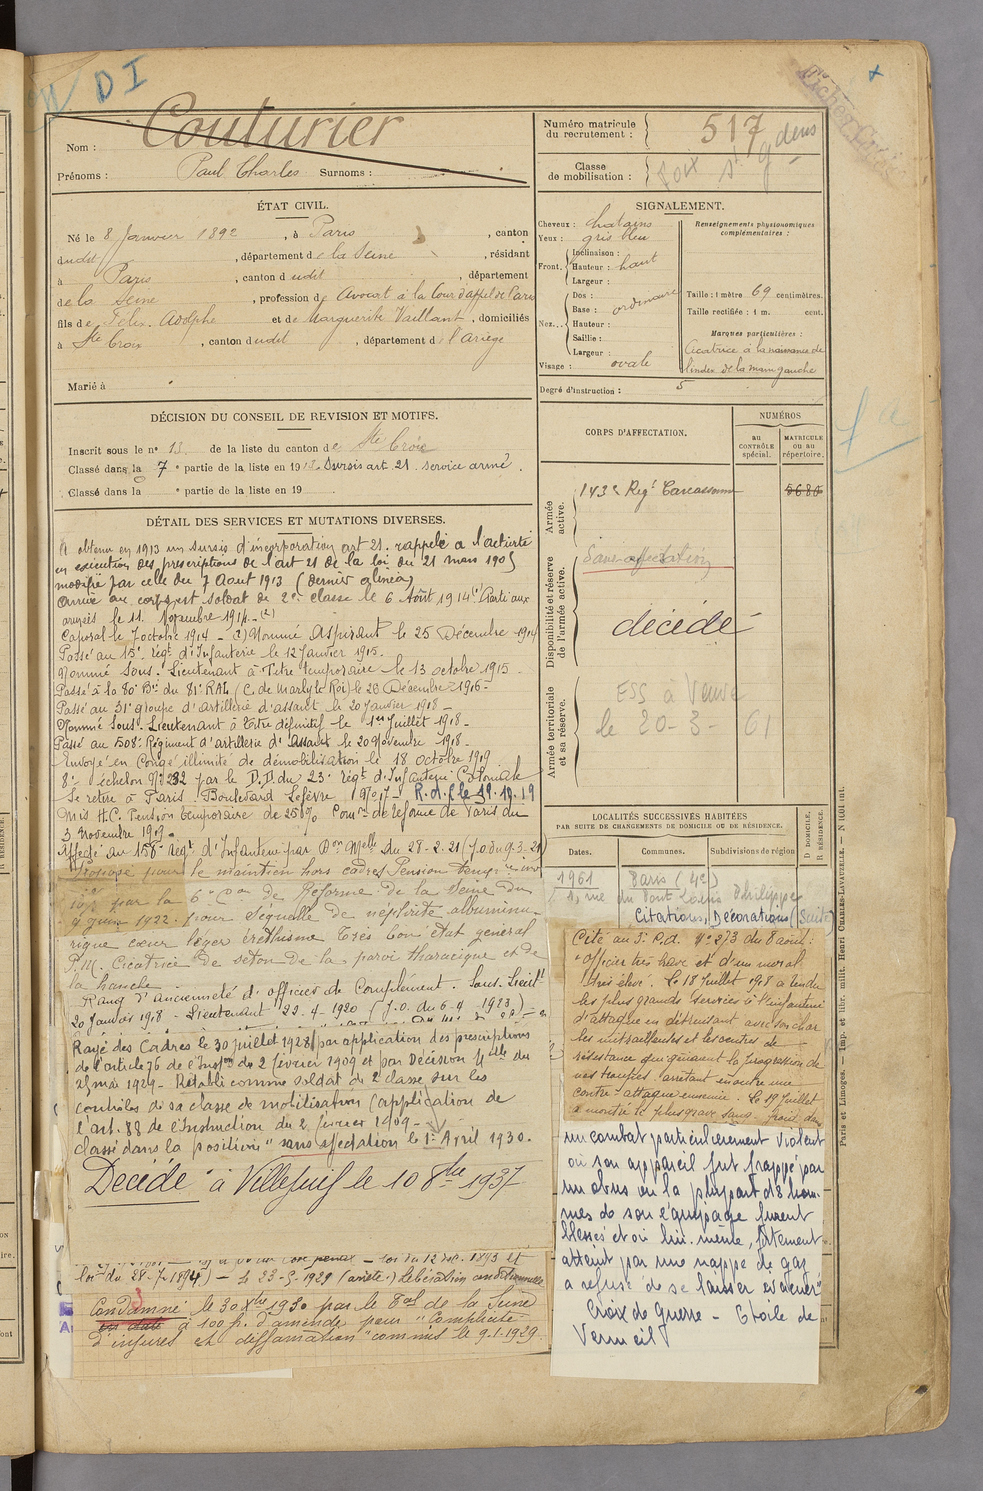 D I
Fiches
Nom : Couturier
Prénoms : Paul Charles Surnoms :
Numéro matricule
du recrutement : 517
Classe
de mobilisation : Foix St Gdens
ÉTAT CIVIL.
Né le 8 Janvier 1892, à Paris, canton
dudit, département de la Seine, résidant
à Paris, canton dudit, département
de la Seine, profession de Avocat à la Cour d'appel de Paris
fils de Felix Adolphe et de Marguerite Vaillant, domiciliés
à Ste Croix, canton dudit, département de l'Ariège
Marié à
SIGNALEMENT.
Cheveux : chatains
Yeux : gris bleu
Front. Inclinaison :
Hauteur : haut
Largeur :
Nez... Dos :
Base : ordinaire
Hauteur :
Saillie :
Largeur :
Visage : ovale
Renseignements physionomiques
complémentaires :
Taille : 1 mètre 69 centimètres.
Taille rectifiée : 1 m. cent.
Marques particulières :
Cicatrice à la naissance de
l'index de la main gauche
Degré d'instruction : 5
DÉCISION DU CONSEIL DE REVISION ET MOTIFS.
Inscrit sous le no 13 de la liste du canton de Ste Croix
Classé dans la 7e partie de la liste en 1912. Sursis art. 21. service armé.
Classé dans la e partie de la liste en 19
CORPS D'AFFECTATION.
NUMÉROS
AU
CONTRÔLE
spécial.
MATRICULE
OU AU
répertoire.
Armée
active.
143e Regt Carcassonne 5680
Disponibilité et réserve
de l'armée active.
Sans affectation
décédé
Armée territoriale
et sa réserve.
ESS à Veuve
le 20-3-61
DÉTAIL DES SERVICES ET MUTATIONS DIVERSES.
A obtenu en 1913 un sursis d'incorporation art 21. rappelé à l'activité
en exécution des prescriptions de l'art 21 de la loi du 21 mars 1905
modifié par celle du 7 Aout 1913 (dernier alinéa)
Arrivé au corps est soldat de 2e classe le 6 Août 1914 Parti aux
armées le 11 Novembre 1914 - (2)
Caporal le 7 octobre 1914 - (2) Nommé Aspirant le 25 Décembre 1914
Passé au 15e régt d'Infanterie le 12 Janvier 1915.
Nommé Sous-Lieutenant à Titre temporaire le 13 octobre 1915
Passé à la 80e Bie du 81e RAL (C. de Marly le Roi) le 26 Décembre 1916 -
Passé au 31e groupe d'artillerie d'assaut le 20 Janvier 1918 -
Nommé Sous-Lieutenant à titre définitif le 1er Juillet 1918 -
Passé au 508e Régiment d'artillerie d'Assaut le 20 Novembre 1918 -
Envoyé en Congé illimité de démobilisation le 18 octobre 1919
8e échelon No 282 par le D.D. du 23e régt d'Infanterie Coloniale
Se retire à Paris Boulevard Lefèvre No 17 - R.d.f. le 19.10.19
Mis H.C. Pension temporaire de 25% Comon de réforme de Paris du
3 Novembre 1919.
Affecté au 158e Regt d'Infanterie par Don Mlle du 28-2-21 (J.O. du 9-3-21)
Proposé pour le maintien hors cadres Pension tempre inv
10% par la 6e Con de Réforme de la Seine du
9 juin 1922. pour Sequelle de néphrite albuminu-
rique cœur léger éréthisme très bon état general
P.M. Cicatrice de seton de la paroi thoracique et de
la hanche
Rang d'ancienneté d'officier de Complément. Sous-Lieutt
20 Janvier 1918 - Lieutenant 22-4-1920 (J.O. du 6-4-1923)
Rayé des Cadres le 30 juillet 1928 (par application des prescriptions
de l'article 76 de l'Inston du 2 février 1909 et par Décision Mlle du
25 mai 1929 - Rétabli comme soldat de 2 classe sur les
contrôles de sa classe de mobilisation (application de
l'art. 88 de l'Instruction du 2 février 1909 -
classé dans la position "sans affectation" le 1er Avril 1930.
Décédé à Villejuif le 10 8bre 1937
loi du 28-7-1894) - le 23-5-1929 (arrêté) Libération conditionnelle
Condamné le 30 Xbre 1930 par le Tal de la Seine
à 100 f. d'amende pour "Complicité
d'injures et diffamation" commis le 9-1-1929
LOCALITÉS SUCCESSIVES HABITÉES
PAR SUITE DE CHANGEMENTS DE DOMICILE OU DE RÉSIDENCE.
Dates.
Communes.
Subdivisions de région
D DOMICILE,
R RÉSIDENCE.
1961 Paris (4e)
1, rue du Pont Louis Philippe
Citations, Décorations (Suite)
Cité au J. R.d. No 273 du 8 août :
"Officier très brave et d'un moral
très élevé. Le 18 Juillet 1918 a rendu
les plus grands services à l'infanterie
d'attaque en détruisant avec son char
les mitrailleuses et les centres de
résistance qui gênaient la progression de
nos troupes. arrêtant encore une
contre-attaque ennemie. Le 19 Juillet
a montré le plus grave sang-froid dans
un combat particulièrement violent
où son appareil fut frappé par
un obus où la plupart des hom-
mes de son équipage furent
blessés et où lui-même, fortement
atteint par une nappe de gaz
a refusé de se laisser évacuer"
Croix de Guerre - Etoile de
Vermeil
Paris et Limoges. — Imp. et libr. milit. Henri CHARLES-LAVAUZELLE. — N 1001 int.